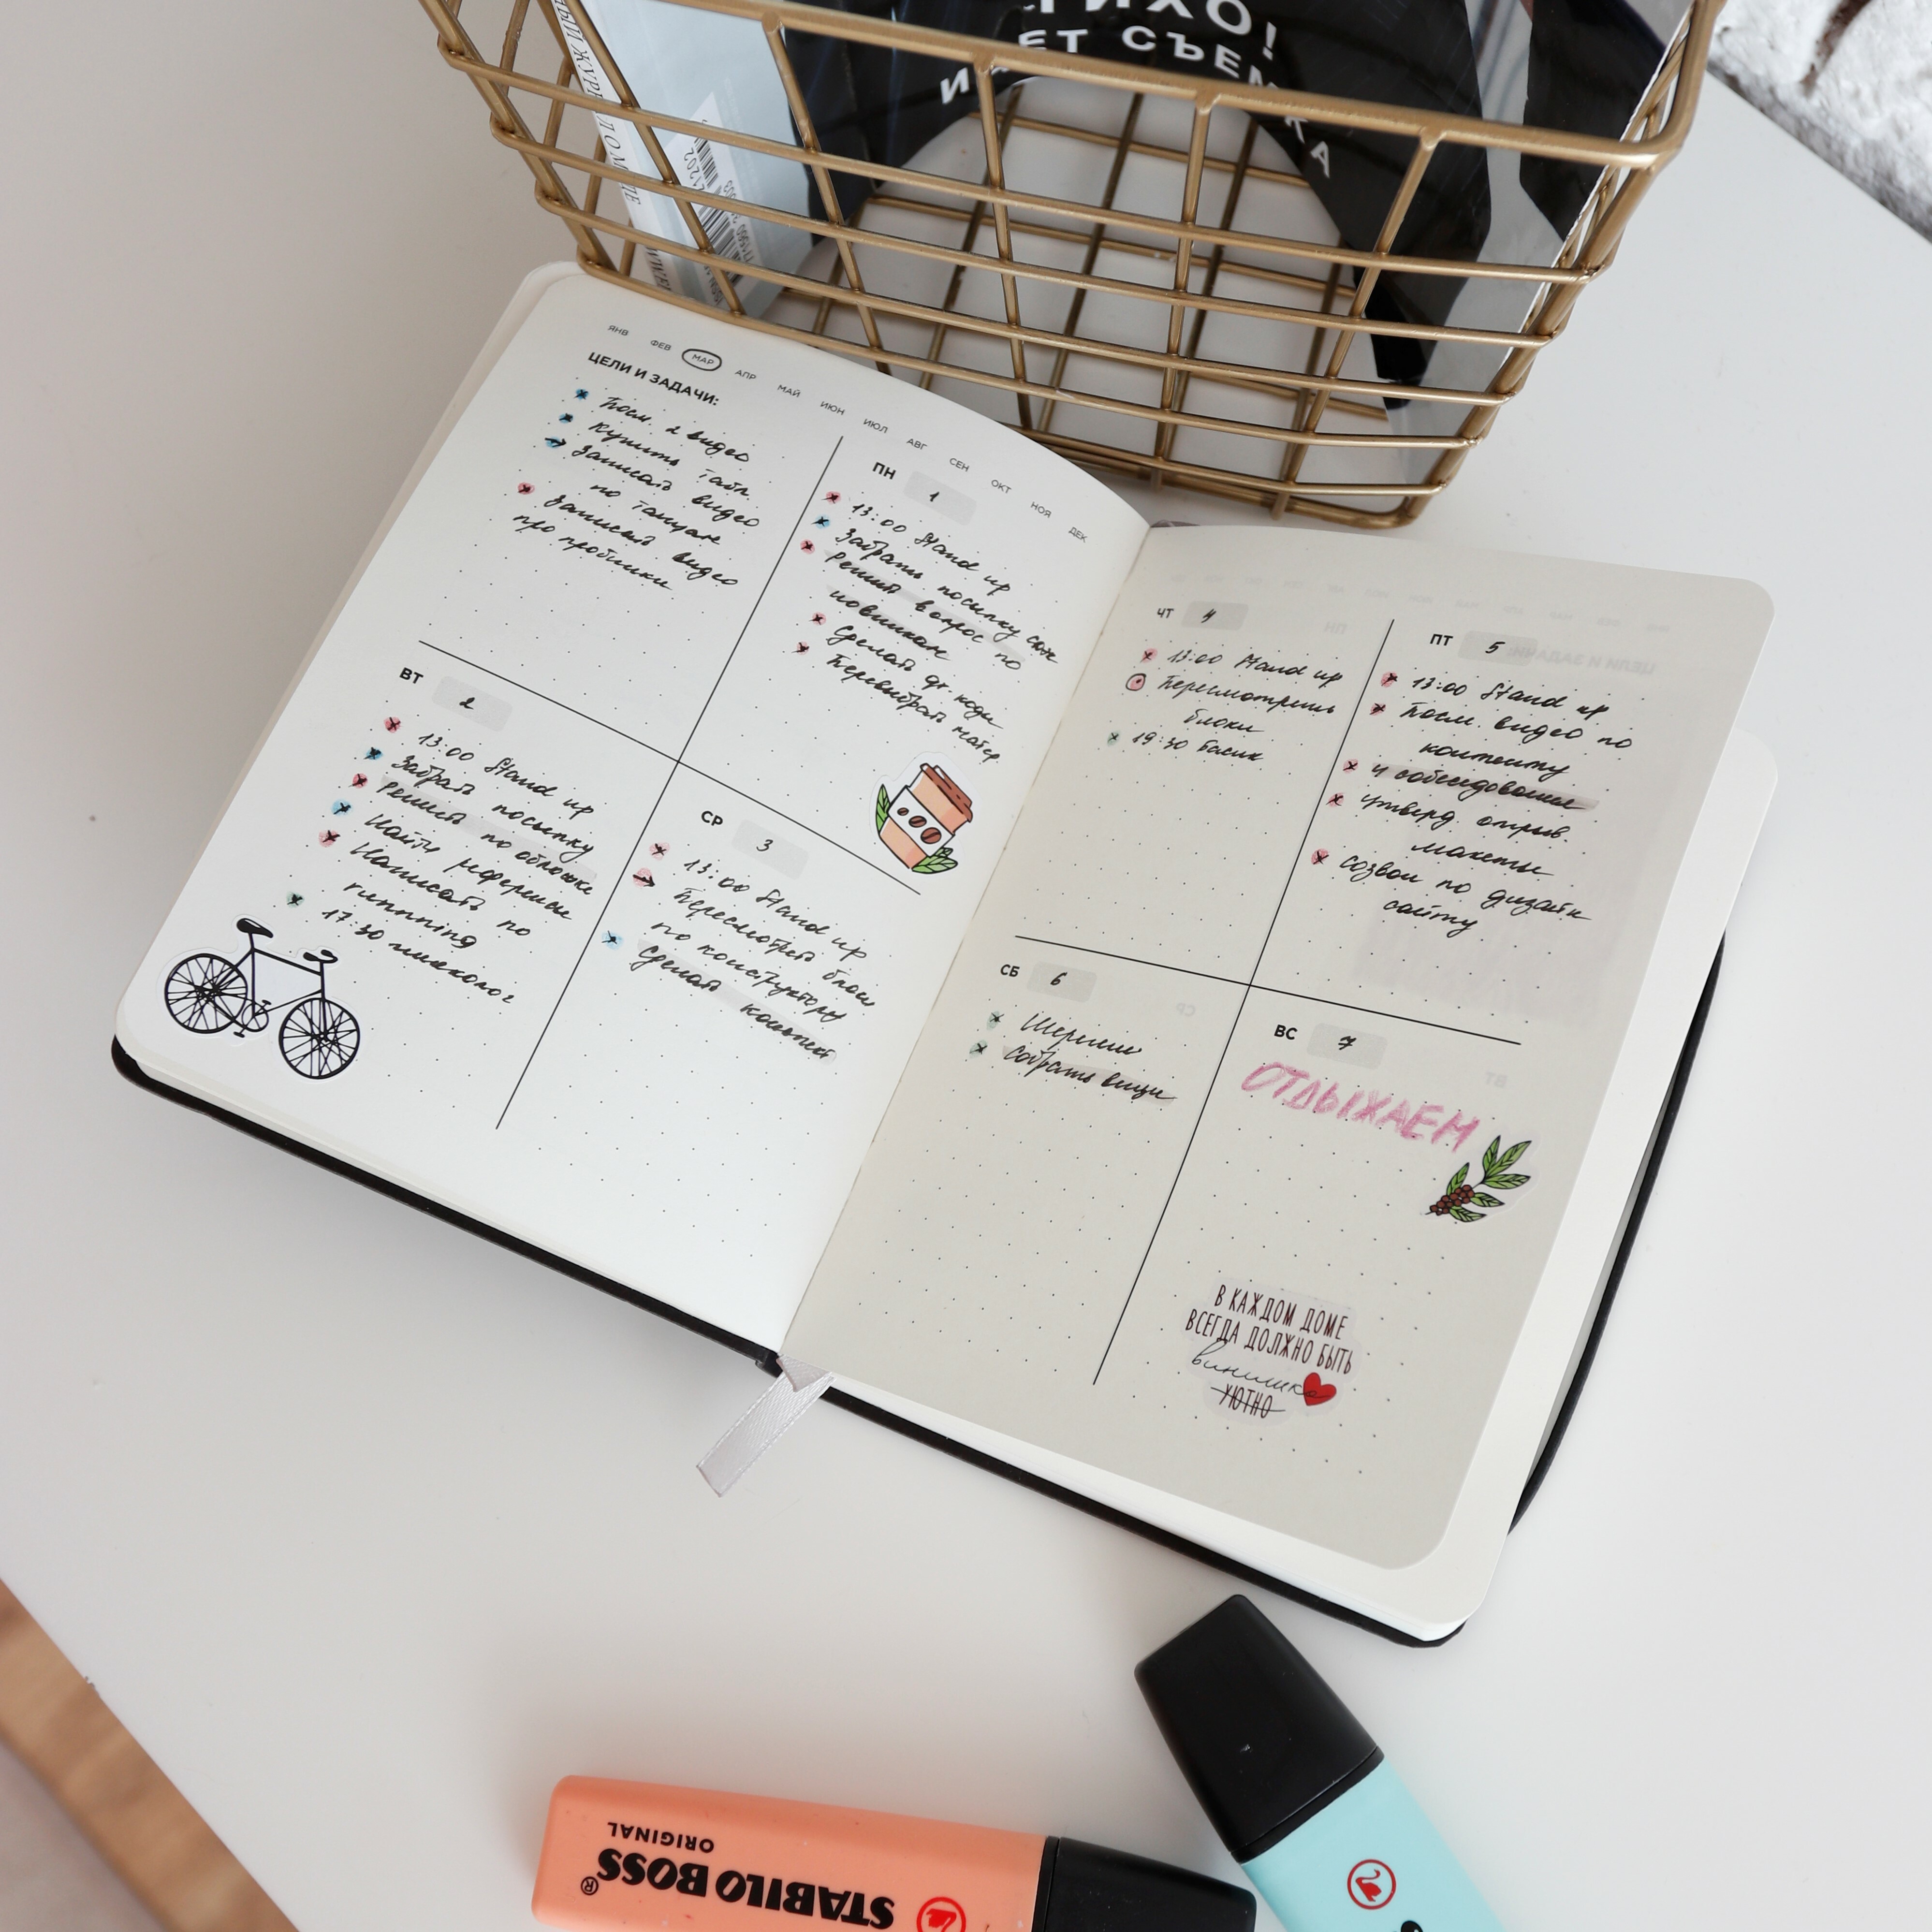 ТИХО!
ИДЕТ СЪЕМКА
ЯНВ ФЕВ МАР АПР МАЙ ИЮН ИЮЛ АВГ СЕН ОКТ НОЯ ДЕК
ЦЕЛИ И ЗАДАЧИ:
Посм. 2 видео
купить табл.
Записать видео
по танцам
Записать видео
про пробники
ПН 1
13:00 Stand up
Забрать посылку
Решить вопрос по
новинкам
Сделать qr. коды
Перевыбрать матер.
ВТ 2
13:00 Stand up
Забрать посылку
Решить по обложке
Найти референсы
Написать по
running
17:30 психолог
СР 3
13:00 Stand up
Пересмотреть блоки
по конструктору
Сделать конспект
ЧТ 4
13:00 Stand up
Пересмотреть
блоки
19:30 Басик
ПТ 5
13:00 Stand up
Посм. видео по
контенту
4 собеседования
утверд. открыв.
макеты
созвон по дизайн
сайту
СБ 6
собрать вещи
ВС 7
ОТДЫХАЕМ
В КАЖДОМ ДОМЕ
ВСЕГДА ДОЛЖНО БЫТЬ
винишко
УЮТНО
STABILO BOSS®
ORIGINAL